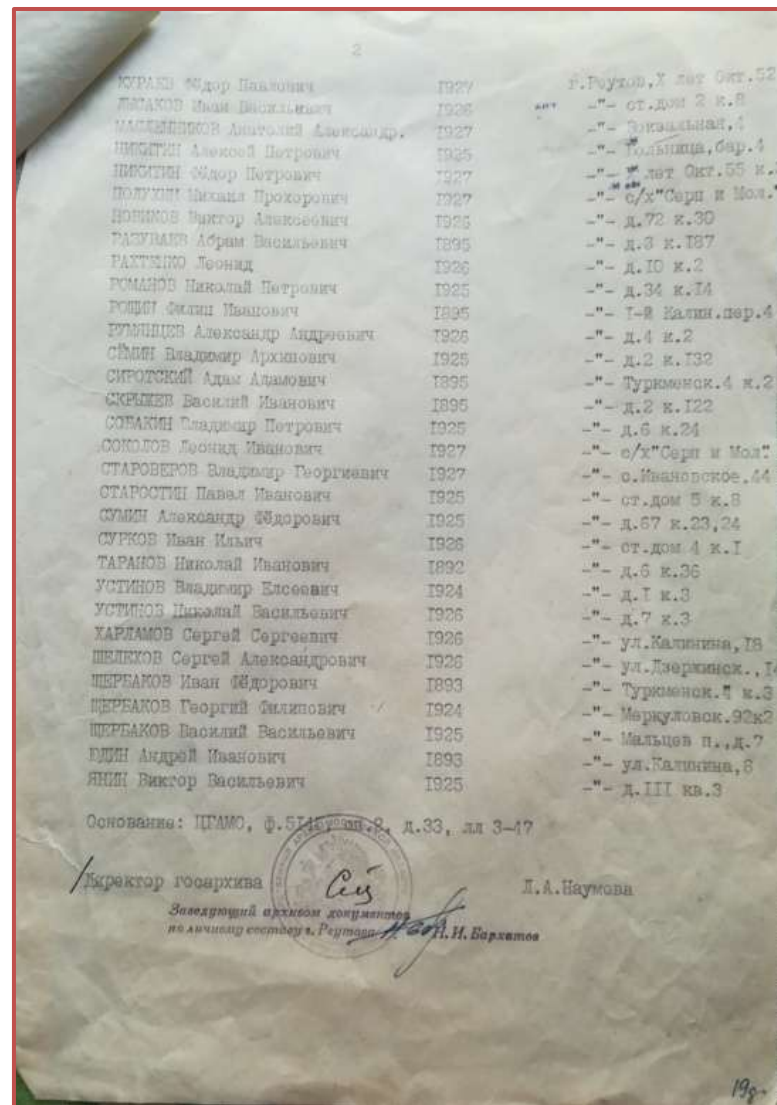 2
КУРАЕВ Фёдор Павлович 1927 г.Реутов,Х лет Окт.52
ЛЫСАКОВ Иван Васильевич 1926 -"- ст.дом 2 к.8
МАСЛЕННИКОВ Анатолий Александр. 1927 -"- Вокзальная,4
НИКИТИН Алексей Петрович 1925 -"- Больница,бар.4
НИКИТИН Фёдор Петрович 1927 -"- лет Окт.55 к.
ПОЛУХИН Михаил Прохорович 1927 -"- с/х"Серп и Мол."
НОВИКОВ Виктор Алексеевич 1926 -"- д.72 к.30
РАЗУВАЕВ Абрам Васильевич 1895 -"- д.3 к.187
РАХТЕНКО Леонид 1926 -"- д.10 к.2
РОМАНОВ Николай Петрович 1925 -"- д.34 к.14
РОЩИН Филип Иванович 1895 -"- I-й Калин.пер.4
РУМЯНЦЕВ Александр Андреевич 1926 -"- д.4 к.2
СЁМИН Владимир Архипович 1925 -"- д.2 к.132
СИРОТСКИЙ Адам Адамович 1895 -"- Туркменск.4 к.2
СКРЫЖЕВ Василий Иванович 1895 -"- д.2 к.122
СОБАКИН Владимир Петрович 1925 -"- д.6 к.24
СОКОЛОВ Леонид Иванович 1927 -"- с/х"Серп и Мол".
СТАРОВЕРОВ Владимир Георгиевич 1927 -"- с.Ивановское.44
СТАРОСТИН Павел Иванович 1925 -"- ст.дом 5 к.8
СУМИН Александр Фёдорович 1925 -"- д.67 к.23,24
СУРКОВ Иван Ильич 1926 -"- ст.дом 4 к.I
ТАРАНОВ Николай Иванович 1892 -"- д.6 к.36
УСТИНОВ Владимир Елсеевич 1924 -"- д.I к.3
УСТИНОВ Николай Васильевич 1926 -"- д.7 к.3
ХАРЛАМОВ Сергей Сергеевич 1926 -"- ул.Калинина,18
ШЕЛЕХОВ Сергей Александрович 1926 -"- ул.Дзержинск.,14
ЩЕРБАКОВ Иван Фёдорович 1893 -"- Туркменск. к.3
ЩЕРБАКОВ Георгий Филипович 1924 -"- Меркуловск.92к2
ЩЕРБАКОВ Василий Васильевич 1925 -"- Мальцев п.,д.7
ЮДИН Андрей Иванович 1893 -"- ул.Калинина,8
ЯНИН Виктор Васильевич 1925 -"- д.III кв.3
Основание: ЦГАМО, д.33, лл 3-47
Директор госархива Л.А.Наумова
Заведующий архивом документов
по личному составу г. Реутова Н.И. Бархатов